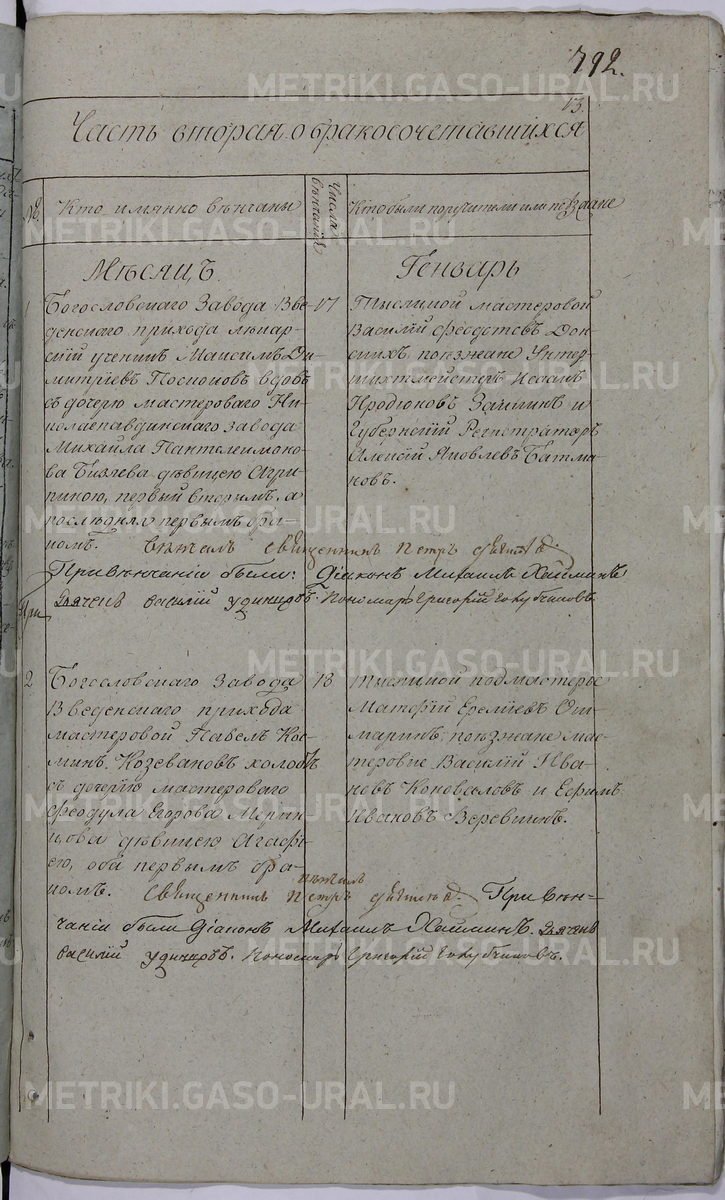 792.
13.
Часть вторая о бракосочетавшихся
№
Кто имянно вѣнчаны
Числа вѣнчанія
Кто были поручители или поѣзжане
Мѣсяцъ
Генварь
1
Богословскаго Завода Вве-
денскаго прихода лѣкар-
скій ученикъ Максимъ Ди-
митріевъ вдовъ
съ дочерью мастероваго Ни-
колаепавдинскаго завода
Михаила Пантелеимоно-
ва дѣвицею Агри-
пиною, первый вторымъ, а
послѣдняя первымъ бра-
комъ.
17
Тысяцкой мастеровой
Василій Феодотовъ Дон-
скихъ, поѣзжане Унтер-
шихтмейстеръ
и
Губернскій Регистраторъ
Алексій Яковлевъ Батма-
новъ.
вѣнчалъ священникъ Петръ
При вѣнчаніи были: Діаконъ Михаилъ Хаймин
Дьячекъ Василій Удинцовъ. Пономарь Григорій Голубчиковъ
2
Богословскаго Завода
Введенскаго прихода
мастеровой Павелъ Кос-
минъ Козевановъ холостъ
съ дочерью мастероваго
Феодула Егорова
дѣвицею Агафі-
ею, оба первымъ бра-
комъ.
18
Тысяцкой подмастерье
Матфій Еремѣевъ Ош-
маринъ; поѣзжане мас-
теровые Василій Ива-
новъ Коноваловъ и Ефимъ
Ивановъ Веревкинъ.
вѣнчалъ
священникъ Петръ При вѣн-
чаніи были Діаконъ Михаилъ Хаймин Дьячекъ
Василій Удинцовъ. Пономарь Григорій Голубчиковъ.
METRIKI.GASO-URAL.RU